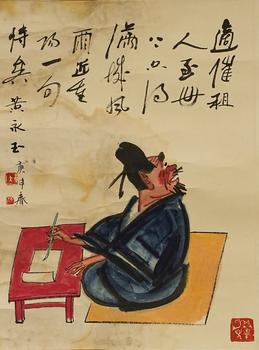 適催租
人至
得
滿城風
雨近重
陽一句
黄永玉
庚申春